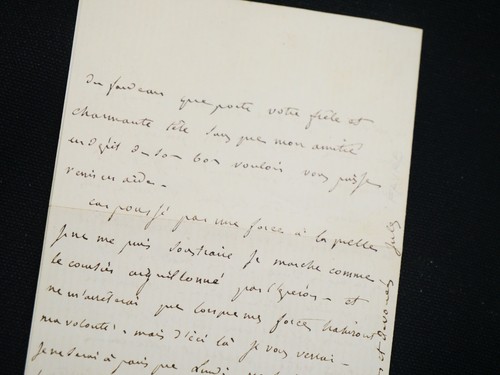 du fardeau que porte votre frêle et
charmante tête sans que mon amitié
en dépit de son bon vouloir vous puisse
venir en aide -
car poussé par une force à la quelle
je ne me puis soustraire je marche comme
le coursier aiguillonné par l'éperon - et
ne m'arrêterai que lorsque mes forces trahiront
ma volonté. mais d'ici là je vous verrai -
je ne serai à paris que Lundi
et dévoué Jules